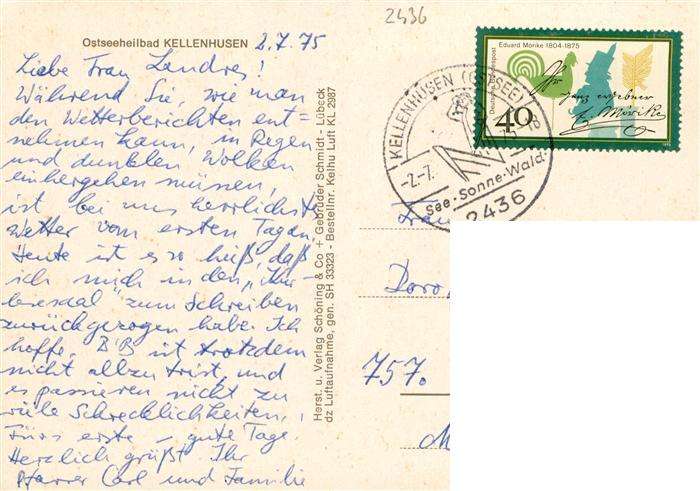 2436
Ostseeheilbad KELLENHUSEN 2.7.75
Liebe Frau Landres!
Während Sie, wie man
den Wetterberichten ent=
nehmen kann, in Regen
und dunklen Wolken
einhergehen müssen,
ist bei uns herrlichstes
Wetter vom ersten Tag an.
Heute ist es so heiß, daß
ich mich in den „Kur
lesesaal" zum Schreiben
zurückgezogen habe. Ich
hoffe, BB ist trotzdem
nicht allzu trist, und
es passieren nicht zu
viele Schrecklichkeiten.
Fürs erste – gute Tage.
Herzlich grüßt Ihr
Pfarrer Carl und Familie
Herst. u. Verlag Schöning & Co + Gebrüder Schmidt - Lübeck
dz Luftaufnahme, gen. SH 33323 - Bestellnr. Kelhu Luft KL 2987
Eduard Mörike 1804-1875
Deutsche Bundespost
40
ganz ergebner
E. Mörike
1975
KELLENHUSEN (OSTSEE)
-2.-7.
See-Sonne-Wald
2436
Frau
Doro
757.
M